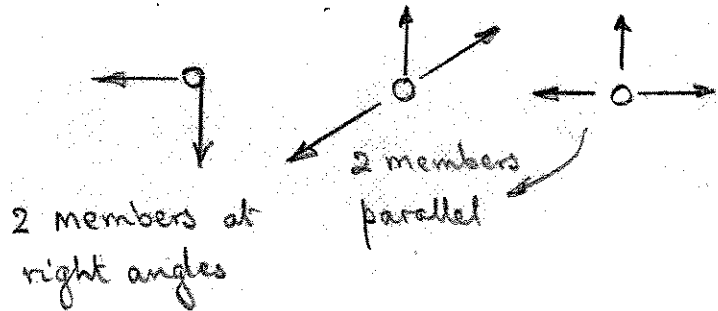 2 members at
right angles
2 members
parallel